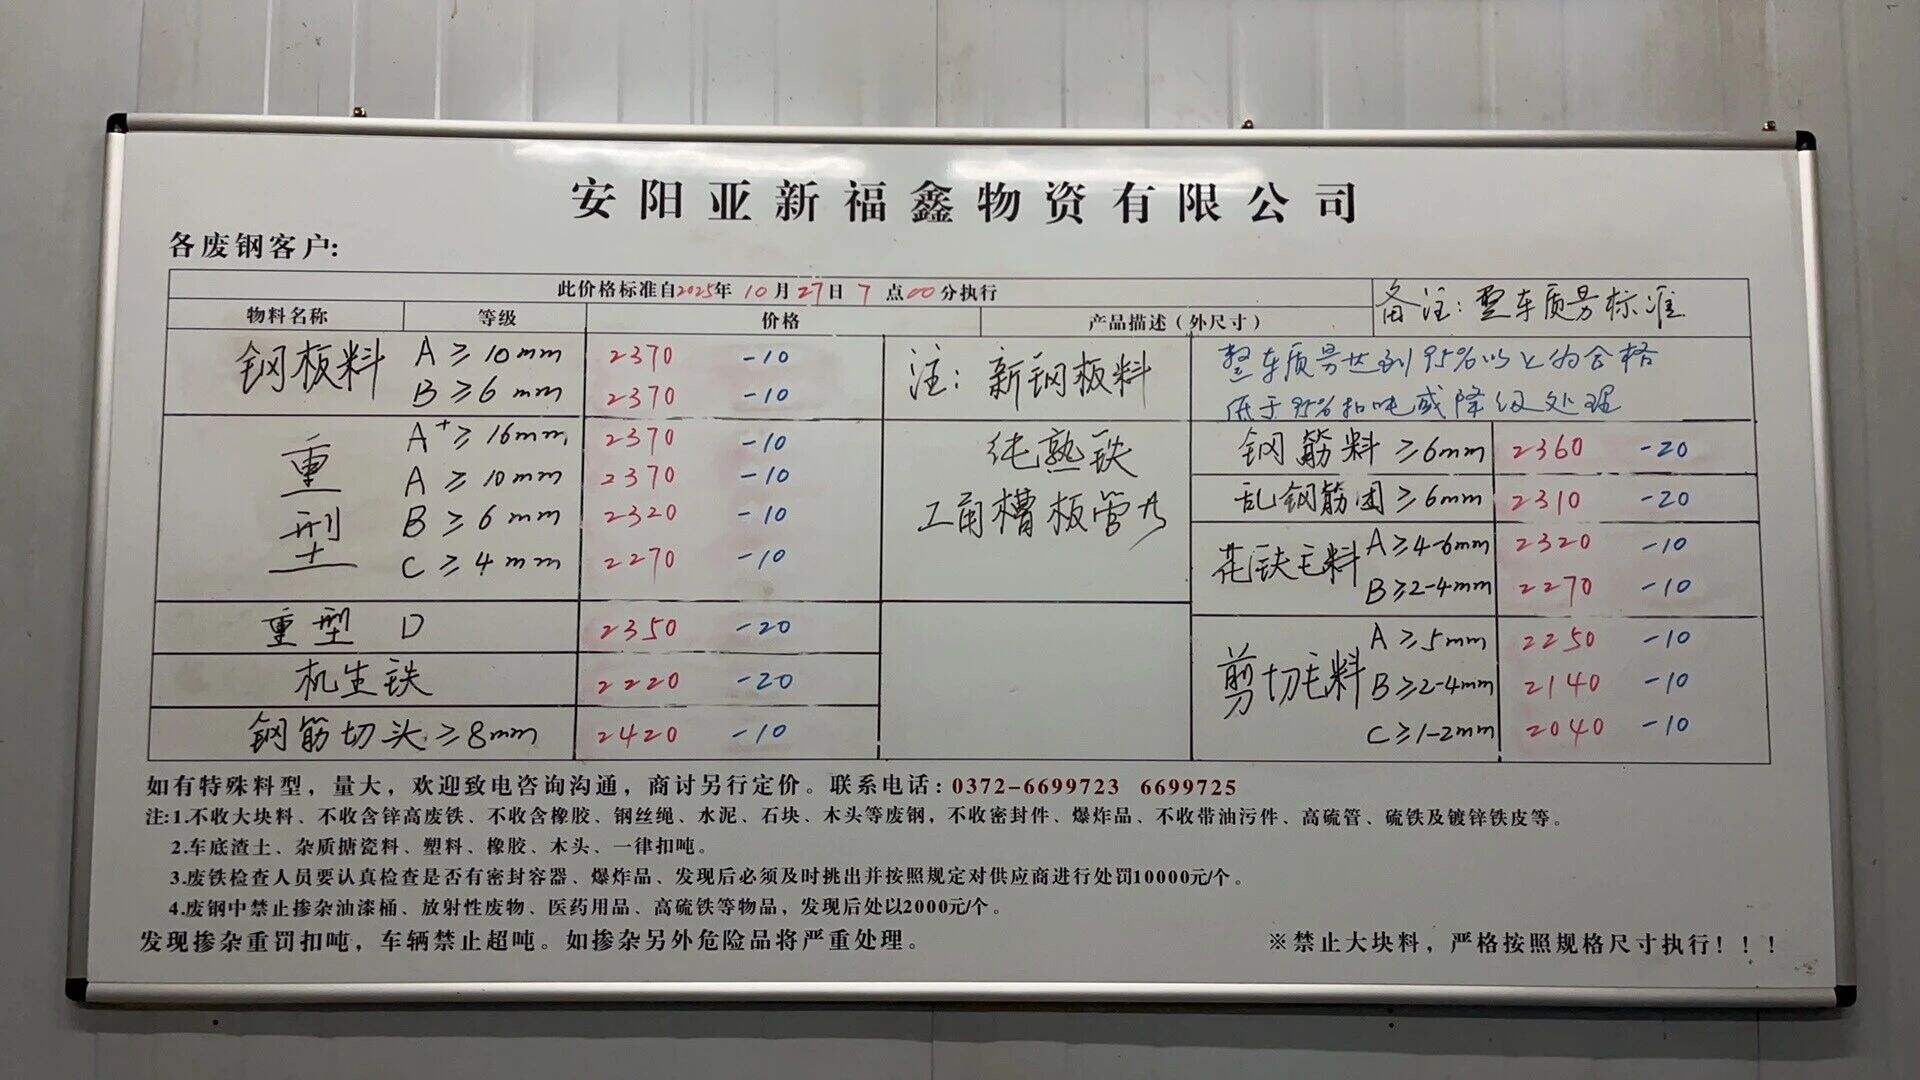 安阳亚新福鑫物资有限公司
各废钢客户:
此价格标准自2025年 10月27日 7 点00分执行
备注: 整车质量标准
物料名称 等级 价格 产品描述（外尺寸）
钢板料 A ≥ 10mm 2370 -10
B ≥ 6mm 2370 -10
重型 A+ ≥ 16mm 2370 -10
A ≥ 10mm 2370 -10
B ≥ 6mm 2320 -10
C ≥ 4mm 2270 -10
重型 D 2350 -20
机生铁 2220 -20
钢筋切头 ≥8mm 2420 -10
注: 新钢板料
纯熟铁
工角槽板管
整车质量达到95%以上为合格
低于95%扣吨或降级处理
钢筋料 ≥6mm 2360 -20
乱钢筋团 ≥6mm 2310 -20
花铁毛料 A ≥4-6mm 2320 -10
B ≥2-4mm 2270 -10
剪切毛料 A ≥5mm 2250 -10
B ≥2-4mm 2140 -10
C ≥1-2mm 2040 -10
如有特殊料型，量大，欢迎致电咨询沟通，商讨另行定价。联系电话: 0372-6699723 6699725
注:1.不收大块料、不收含锌高废铁、不收含橡胶、钢丝绳、水泥、石块、木头等废钢，不收密封件、爆炸品、不收带油污件、高硫管、硫铁及镀锌铁皮等。
2.车底渣土、杂质搪瓷料、塑料、橡胶、木头、一律扣吨。
3.废铁检查人员要认真检查是否有密封容器、爆炸品、发现后必须及时挑出并按照规定对供应商进行处罚10000元/个。
4.废钢中禁止掺杂油漆桶、放射性废物、医药用品、高硫铁等物品，发现后处以2000元/个。
发现掺杂重罚扣吨，车辆禁止超吨。如掺杂另外危险品将严重处理。
※禁止大块料，严格按照规格尺寸执行！！！